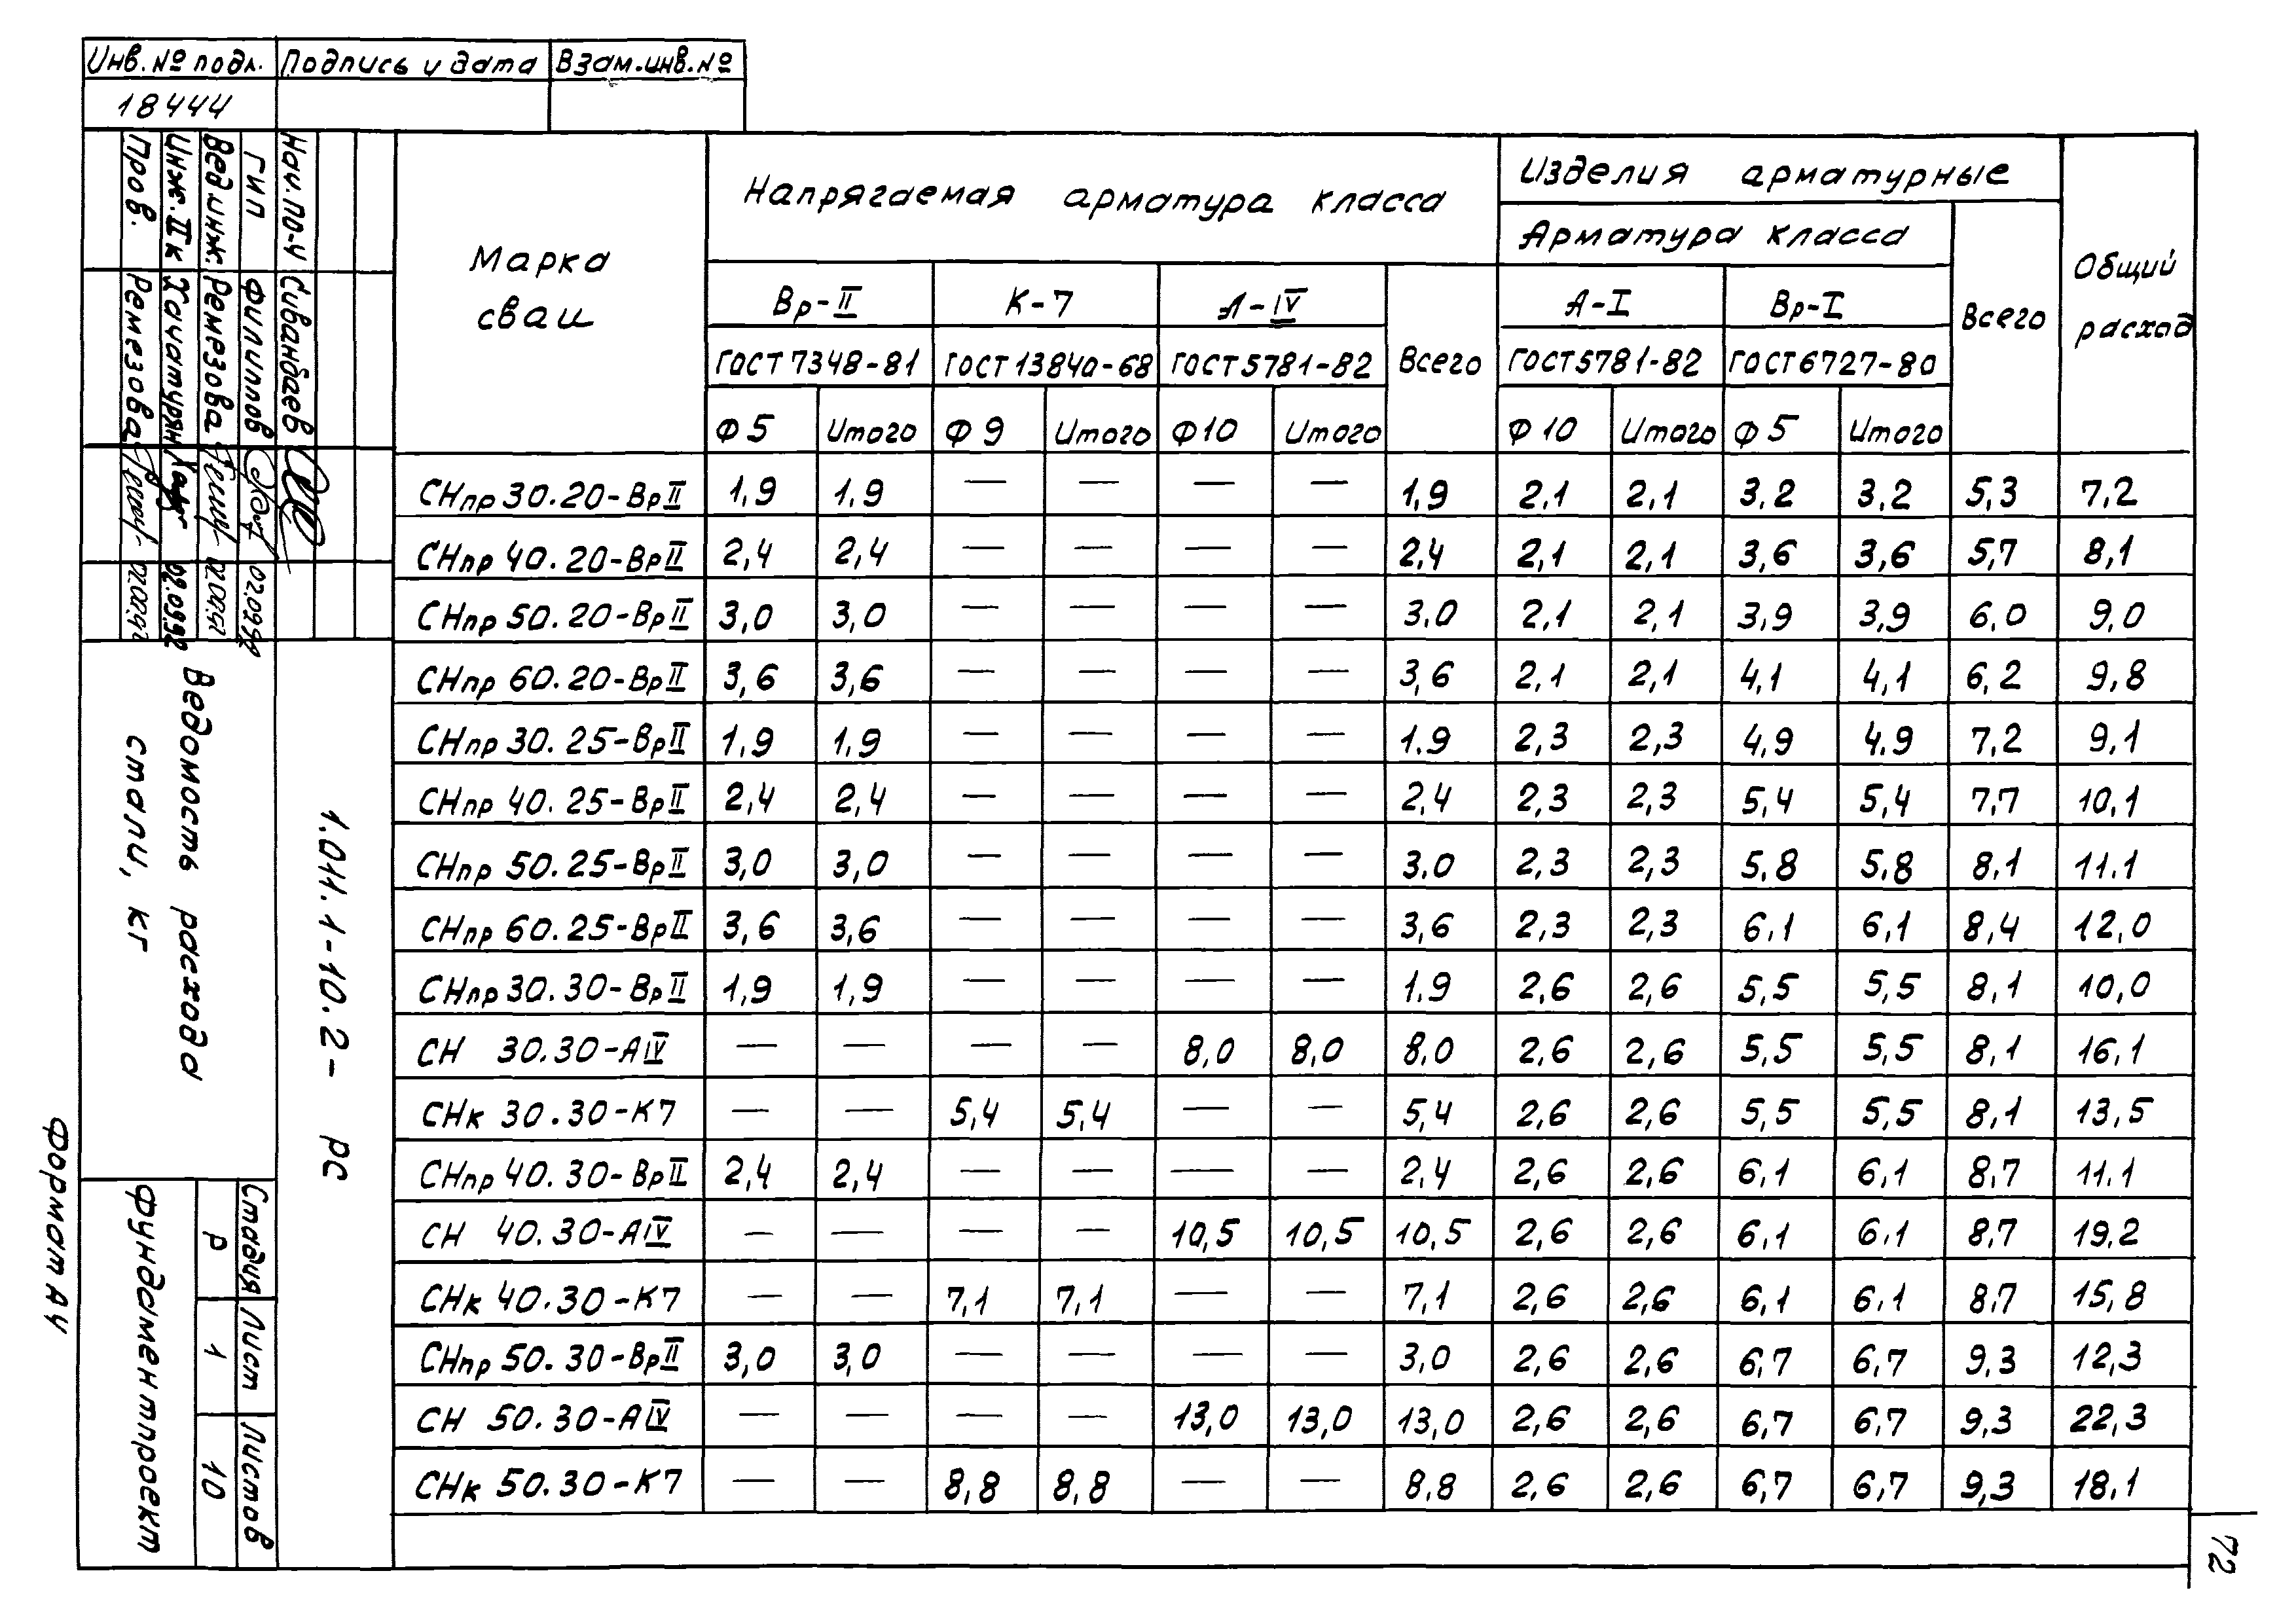 Инв. № подл. Подпись и дата Взам.инв.№
18444
Марка сваи
Напрягаемая арматура класса
Изделия арматурные
Арматура класса
Общий расход
Вр-II К-7 А-IV Всего А-I Вр-I Всего
ГОСТ 7348-81 ГОСТ 13840-68 ГОСТ 5781-82 ГОСТ 5781-82 ГОСТ 6727-80
Ф 5 Итого Ф 9 Итого Ф 10 Итого Ф 10 Итого Ф 5 Итого
СНпр 30.20-ВрII 1,9 1,9 — — — — 1,9 2,1 2,1 3,2 3,2 5,3 7,2
СНпр 40.20-ВрII 2,4 2,4 — — — — 2,4 2,1 2,1 3,6 3,6 5,7 8,1
СНпр 50.20-ВрII 3,0 3,0 — — — — 3,0 2,1 2,1 3,9 3,9 6,0 9,0
СНпр 60.20-ВрII 3,6 3,6 — — — — 3,6 2,1 2,1 4,1 4,1 6,2 9,8
СНпр 30.25-ВрII 1,9 1,9 — — — — 1,9 2,3 2,3 4,9 4,9 7,2 9,1
СНпр 40.25-ВрII 2,4 2,4 — — — — 2,4 2,3 2,3 5,4 5,4 7,7 10,1
СНпр 50.25-ВрII 3,0 3,0 — — — — 3,0 2,3 2,3 5,8 5,8 8,1 11,1
СНпр 60.25-ВрII 3,6 3,6 — — — — 3,6 2,3 2,3 6,1 6,1 8,4 12,0
СНпр 30.30-ВрII 1,9 1,9 — — — — 1,9 2,6 2,6 5,5 5,5 8,1 10,0
СН 30.30-АIV — — — — 8,0 8,0 8,0 2,6 2,6 5,5 5,5 8,1 16,1
СНк 30.30-К7 — — 5,4 5,4 — — 5,4 2,6 2,6 5,5 5,5 8,1 13,5
СНпр 40.30-ВрII 2,4 2,4 — — — — 2,4 2,6 2,6 6,1 6,1 8,7 11,1
СН 40.30-АIV — — — — 10,5 10,5 10,5 2,6 2,6 6,1 6,1 8,7 19,2
СНк 40.30-К7 — — 7,1 7,1 — — 7,1 2,6 2,6 6,1 6,1 8,7 15,8
СНпр 50.30-ВрII 3,0 3,0 — — — — 3,0 2,6 2,6 6,7 6,7 9,3 12,3
СН 50.30-АIV — — — — 13,0 13,0 13,0 2,6 2,6 6,7 6,7 9,3 22,3
СНк 50.30-К7 — — 8,8 8,8 — — 8,8 2,6 2,6 6,7 6,7 9,3 18,1
Нач.по-ч Сивандаев
ГИП Филиппов 02.09.92
Вед.инж. Ремезова 02.09.92
Инж.IIк Хачатурян 02.09.92
Пров. Ремезова 02.09.92
1.011.1-10.2- РС
Ведомость расхода
стали, кг
Стадия Лист Листов
Р 1 10
Фундаментпроект
Формат А4
72